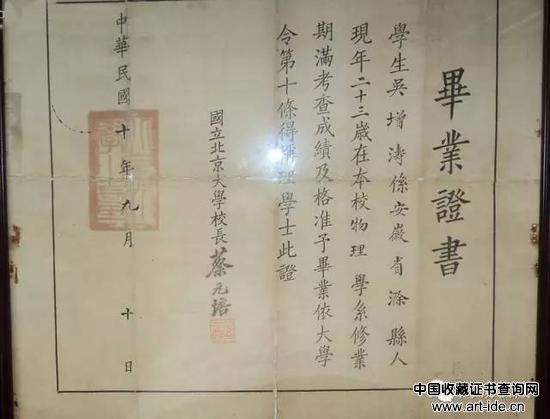 畢業證書
學生吳增濤係安徽省滁縣人
現年二十三歲在本校物理學系修業
期滿考查成績及格准予畢業依大學
令第十條得稱理學士此證
國立北京大學校長蔡元培
中華民國十年九月十日
中国收藏证书查询网
www.art-ide.cn